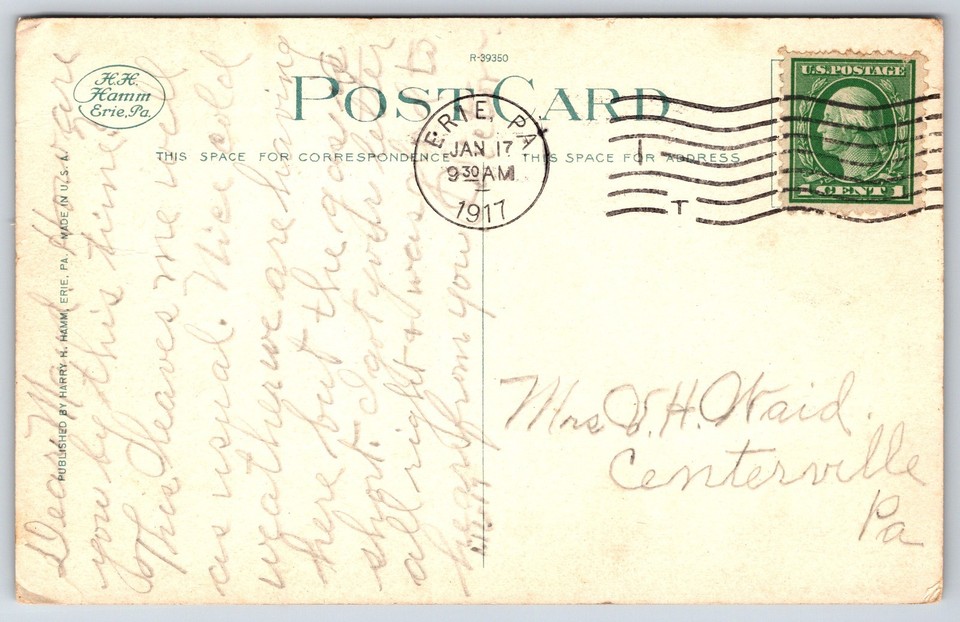 R-39350
H.H.
Hamm
Erie, Pa.
POST CARD
THIS SPACE FOR CORRESPONDENCE
THIS SPACE FOR ADDRESS
ERIE, PA.
JAN 17
9 30 AM
1917
U.S. POSTAGE
1 CENT 1
PUBLISHED BY HARRY H. HAMM, ERIE, PA. MADE IN U.S.A.
Dear how are
you by this time
This leaves me well
as usual. Nice cold
weather we are having
here but the days are
short. I got your letter
all right & was to
hear from you
Mrs V.H. Waid.
Centerville
Pa